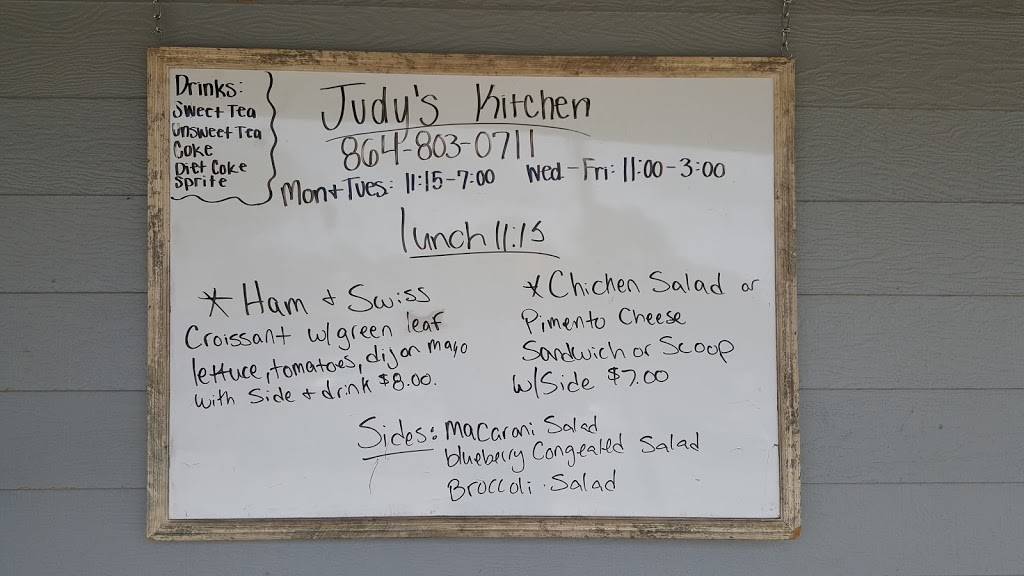 Drinks:
Sweet Tea
Unsweet Tea
Coke
Diet Coke
Sprite
Judy's Kitchen
864-803-0711
Mon+Tues: 11:15-7:00 Wed-Fri: 11:00-3:00
lunch 11:15
* Ham + Swiss
Croissant w/green leaf
lettuce, tomatoes, dijon mayo
with Side + drink $8.00.
* Chicken Salad or
Pimento Cheese
Sandwich or Scoop
w/Side $7.00
Sides: Macaroni Salad
blueberry Congealed Salad
Broccoli Salad